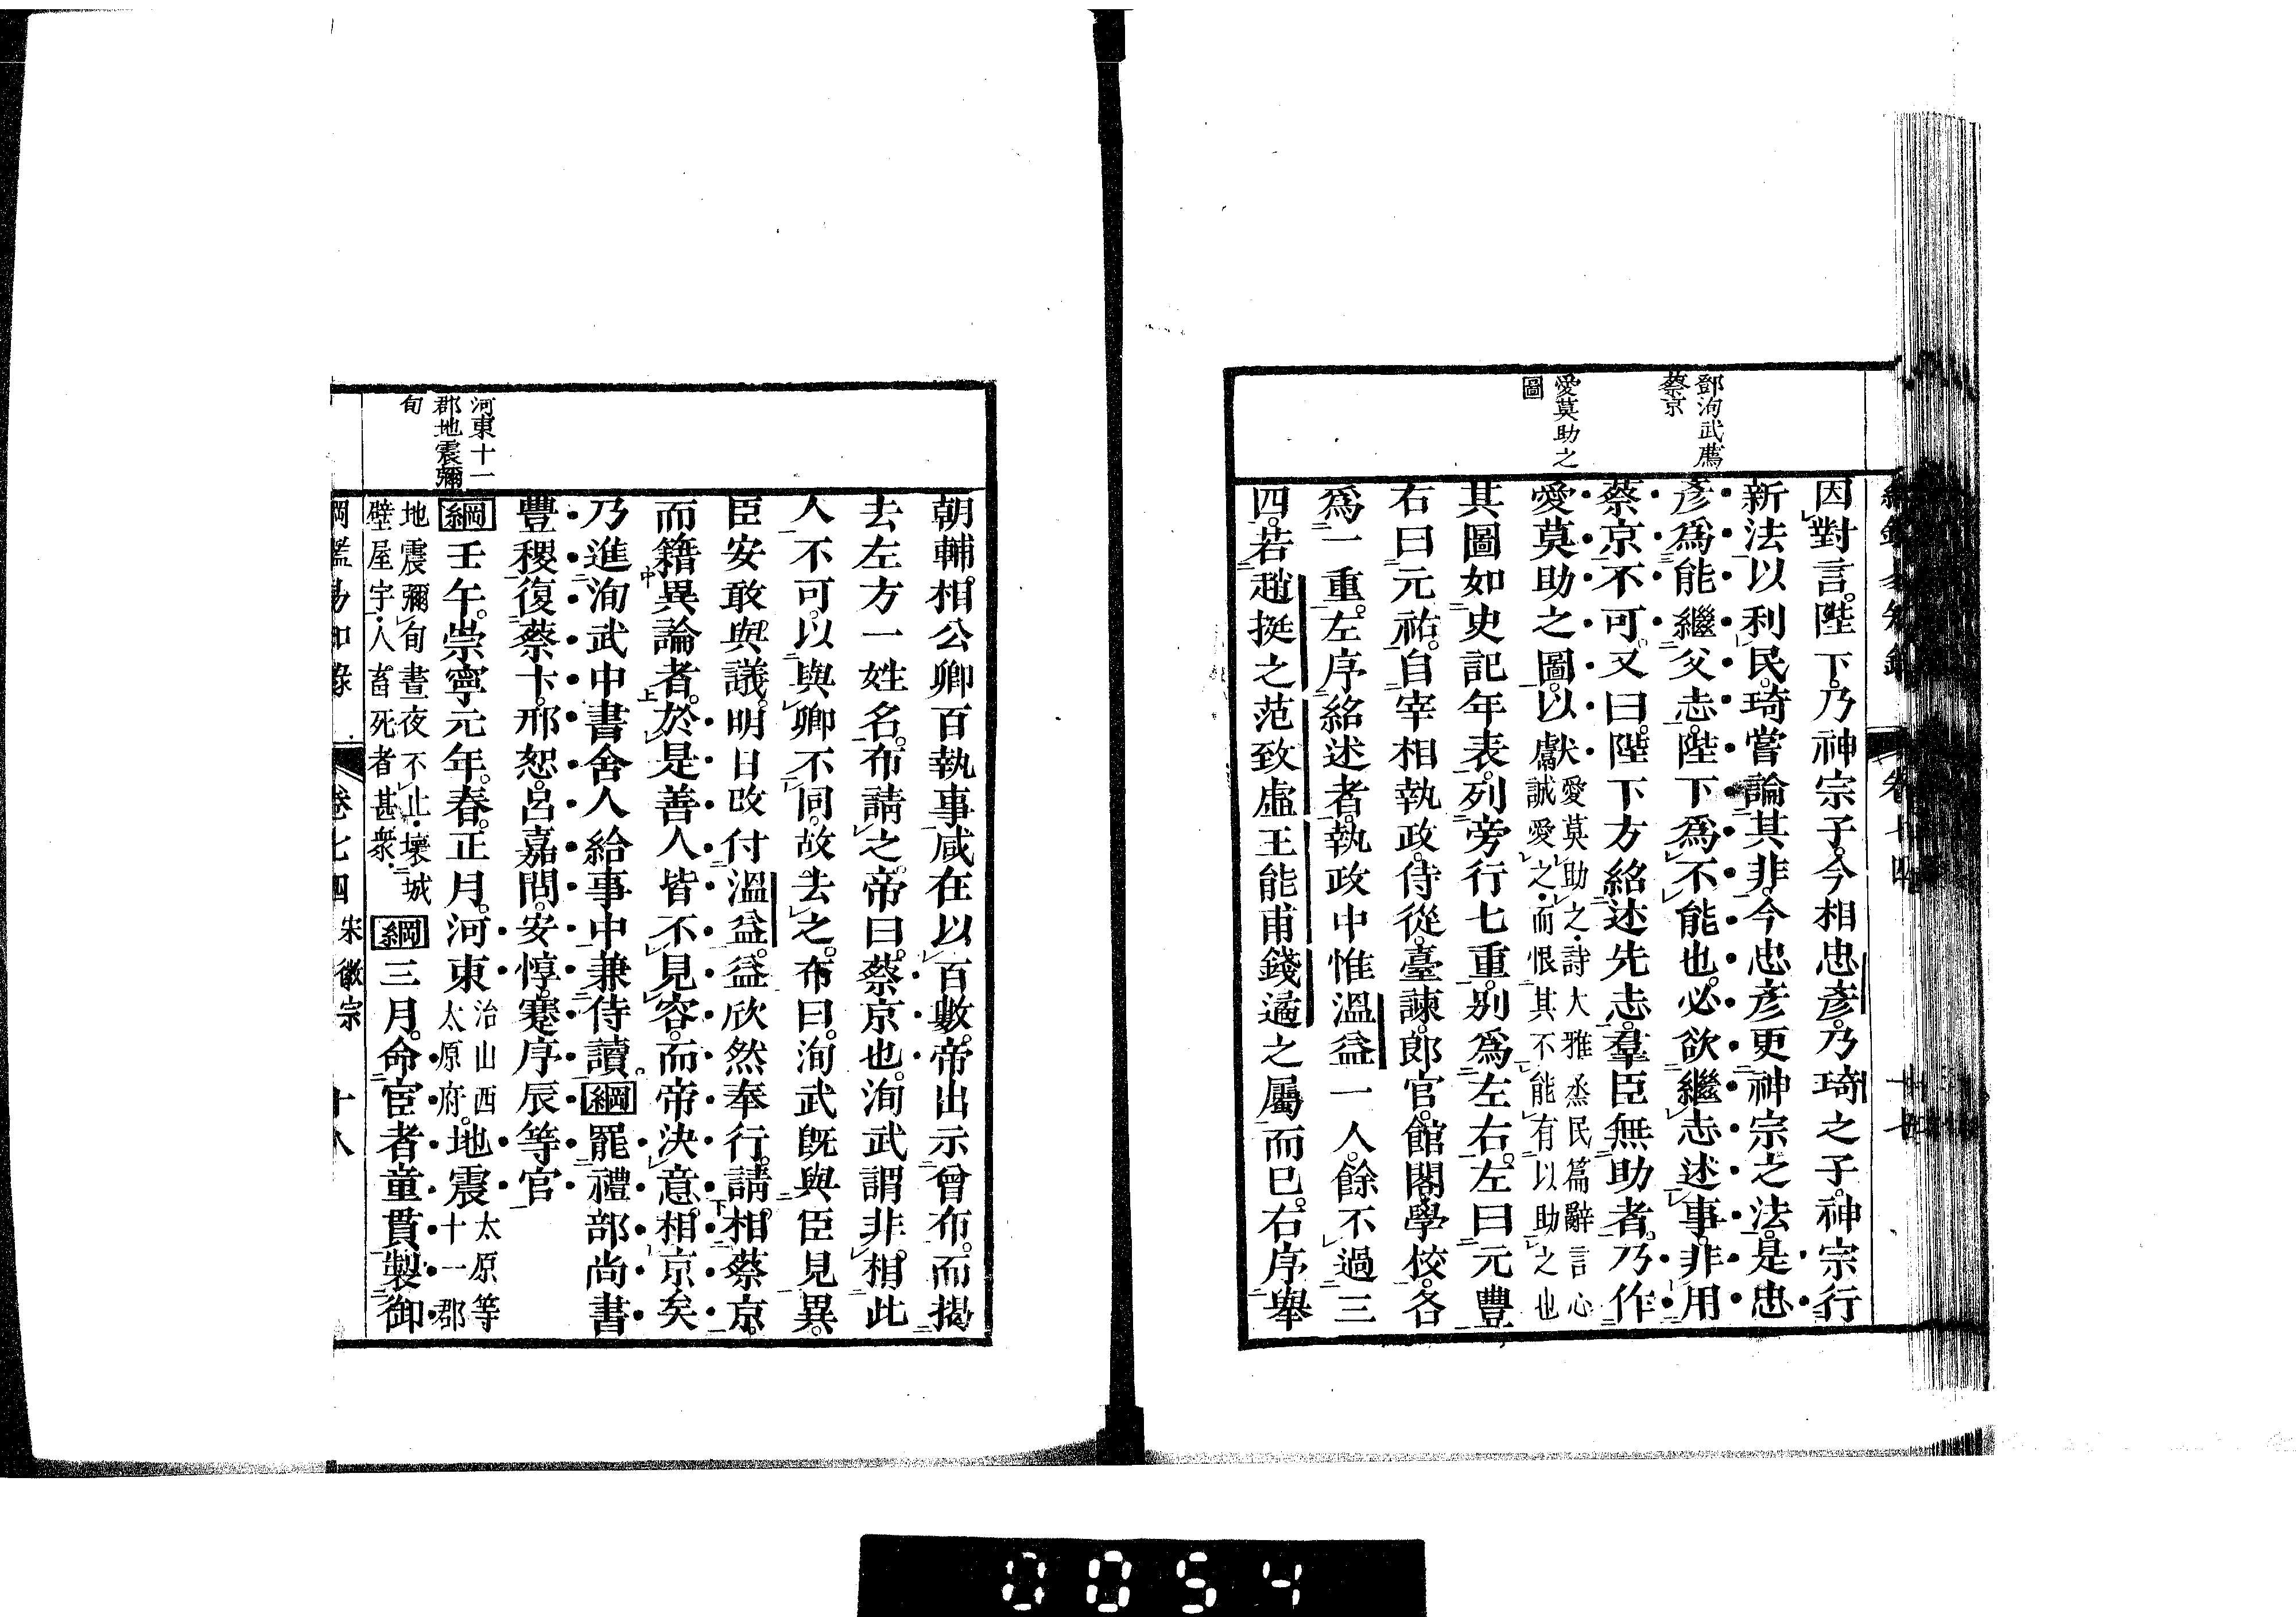 鄧洵武薦
蔡京
愛莫助之
圖
因對言。陛下。乃神宗子。今相忠彥。乃琦之子。神宗行
新法以利民。琦嘗論其非。今忠彥更神宗之法。是忠
彥爲能繼父志。陛下爲不能也。必欲繼志述事。非用
蔡京不可。又曰。陛下方紹述先志。羣臣無助者。乃作
愛莫助之圖。以獻愛莫助之。詩大雅烝民篇辭言心
誠愛之。而恨其不能有以助之也
其圖如史記年表。列旁行七重。別爲左右。左曰元豐
右曰元祐。自宰相執政。侍從。臺諫。郎官。館閣。學校。各
爲一重。左序紹述者。執政中惟溫益一人。餘不過三
四。若趙挺之范致虛王能甫錢遹之屬而已。右序舉
河東十一
郡地震彌
旬
朝輔相公卿百執事咸在以百數。帝出示曾布。而揭
去左方一姓名。布請之。帝曰。蔡京也。洵武謂非相此
人不可。以與卿不同。故去之。布曰。洵武旣與臣見異。
臣安敢與議。明日改付溫益。益欣然奉行。請相蔡京。
而籍異論者。於是善人皆不見容。而帝決意相京矣
乃進洵武中書舍人給事中兼侍讀。綱罷禮部尚書
豐稷復蔡卞。邢恕。呂嘉問。安惇。蹇序辰等官
綱壬午。崇寧元年。春。正月。河東治山西太原府。地震太原等十一郡
地震彌旬晝夜不止。壞城
壁屋宇。人畜死者甚衆。
綱三月。命宦者童貫製御
綱鑑易知錄 卷七四 宋徽宗 十八
0054